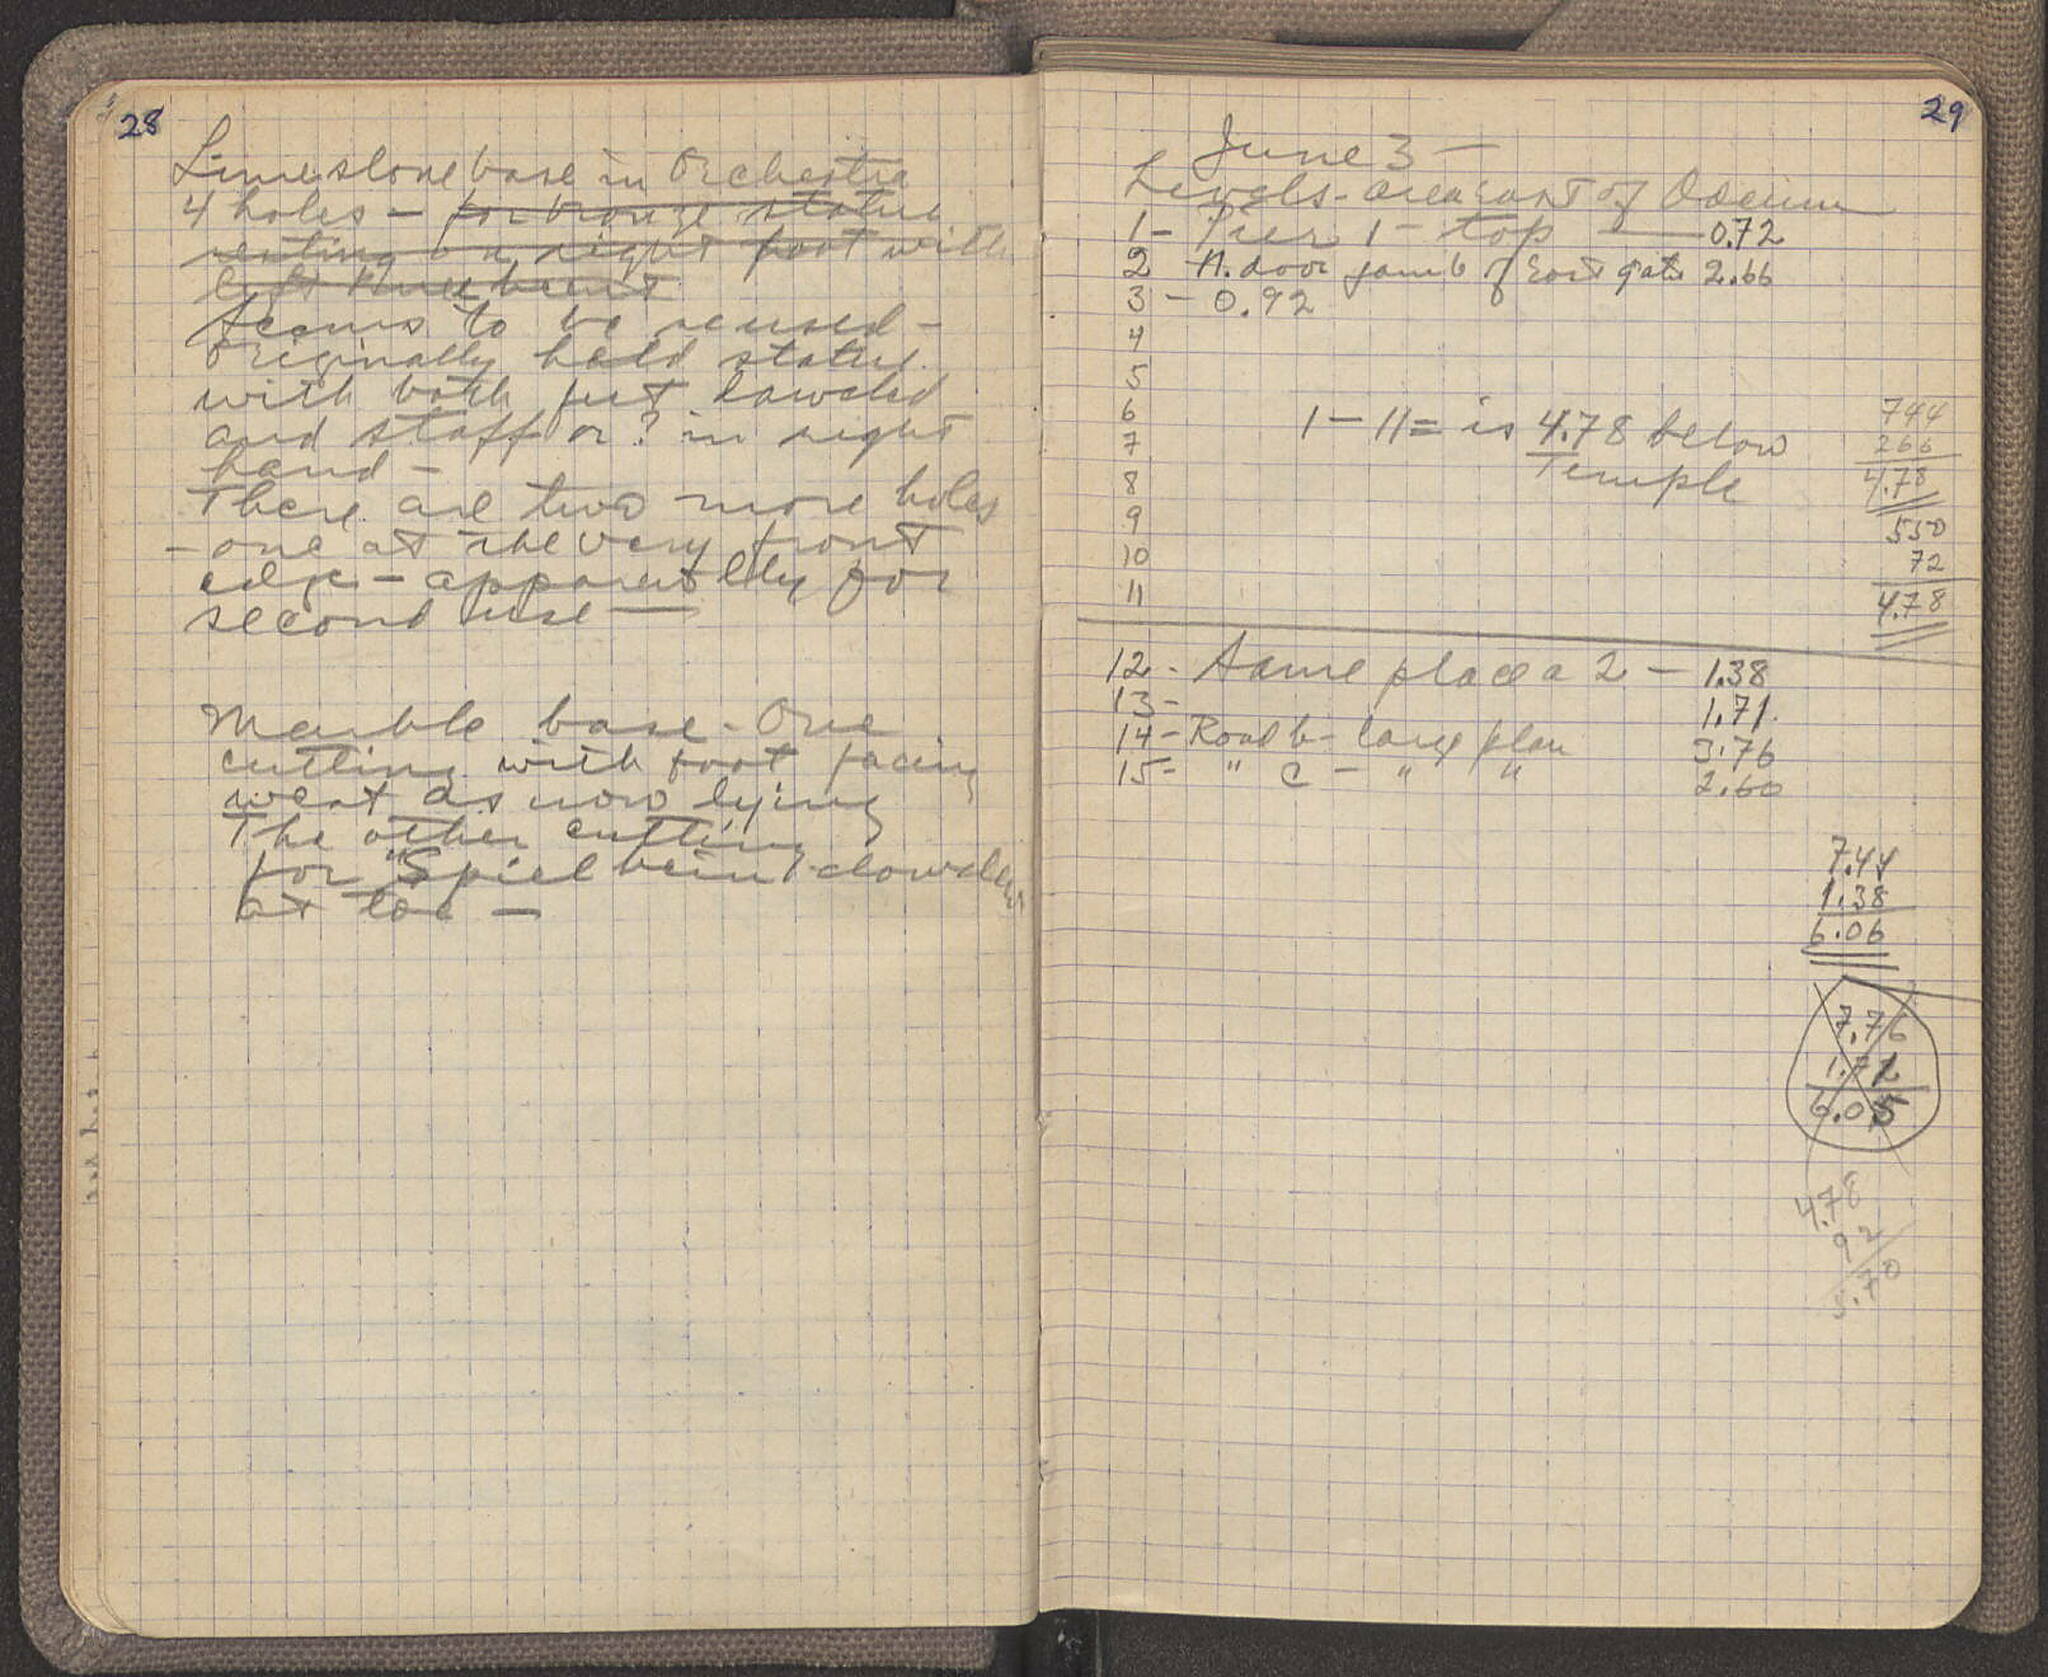 28
Limestone base in Orchestra
4 holes - for bronze statue
resting on right foot with
left knee bent
seems to be reused -
originally held statue
with both feet doweled
and staff or? in right
hand -
There are two more holes
- one at the very front
edge - apparently for
second use —
Marble base - One
cutting with foot facing
west as now lying
The other cutting
for "Spielbein" doweled
at toe —
29
June 3 —
Levels - area east of Odeum
1 - Pier 1 - top — 0.72
2 - N. door jamb of East gate 2.66
3 - 0.92
4
5
6
7
8
9
10
11
1 - 11 = is 4.78 below
Temple
744
266
4.78
550
72
4.78
12 - Same place a 2 - 1.38
13 - 1.71.
14 - Road b - large plan 3.76
15 - " c - " " 2.60
7.44
1.38
6.06
7.76
1.71
6.05
4.78
92
5.70